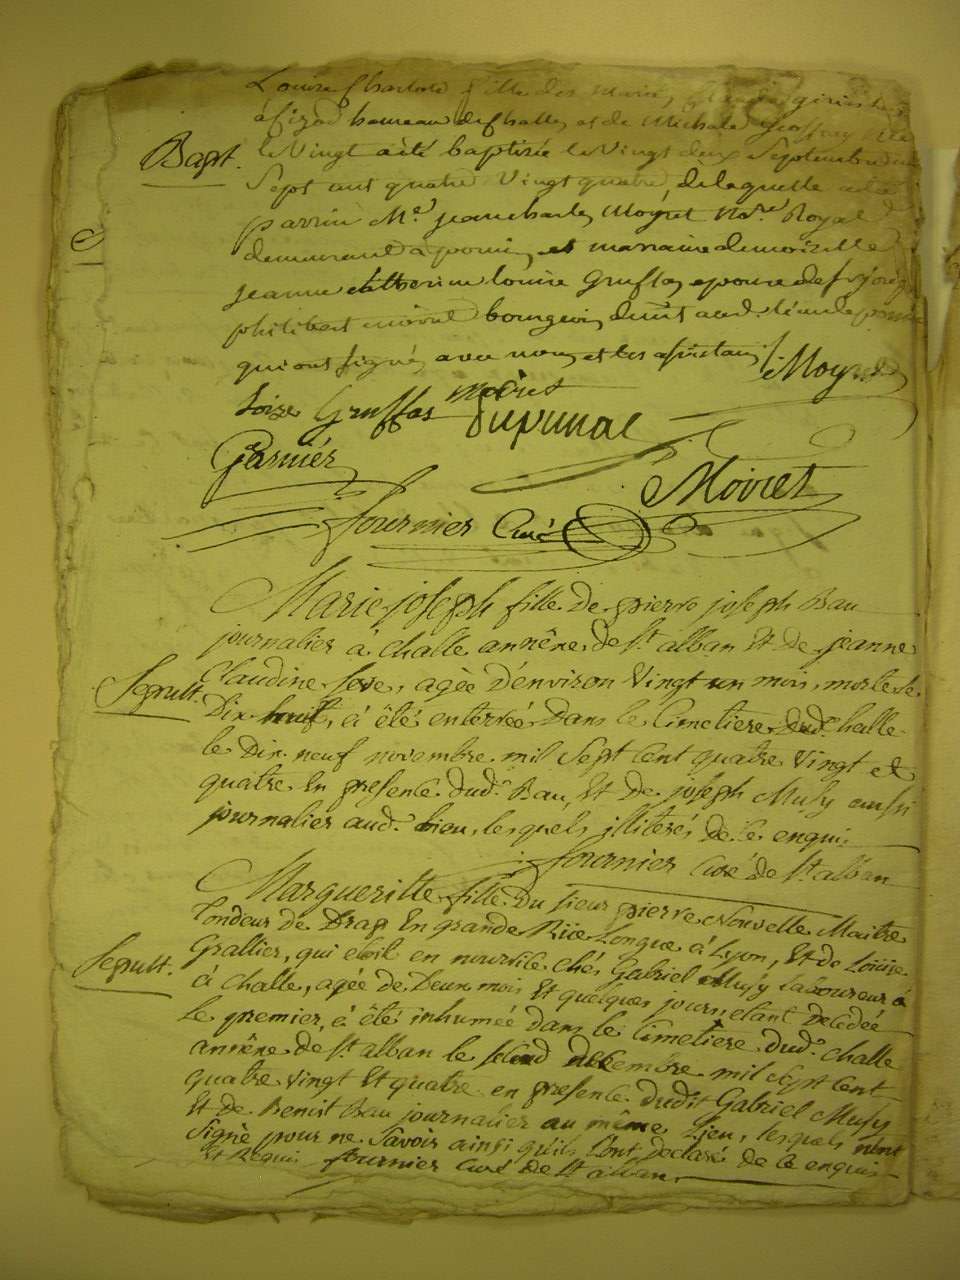 Louise Charlotte fille des
hameau de Challes et de Michele Geoffray née
Bapt. le Vingt a été baptisée le Vingt deux Septembre
Sept cent quatre Vingt quatre, de laquelle a été
parrin Me. jean charles Moyret Nore. Royal
demeurant à poncin et marraine demoizelle
jeanne catherine louise Gruffas epouse de sr joseph
philibert moiret bourgeois dud. lieu de poncin
qui ont signés avec nous et les assistans Moyret
Loize Gruffas Moiret
Duprunal
Garnier
Moiret
fournier Curé
Marie joseph fille De pierre joseph Bau
journalier à challe annêxe de st alban Et De jeanne
Claudine , agèe D'environ Vingt un mois, morte le
Sepult. Dix huit, à êté enterreé Dans le Cimetiere dud. challe
le Dix neuf novembre mil Sept Cent quatre Vingt et
quatre En presence dud. Bau, Et De joseph Musy aussi
journalier aud. lieu, lesquels illiterés de ce enquis
fournier Curé de st alban
Margueritte fille Du sieur pierre Nouvelle Maitre
Tondeur de Drap En grande Rüe Longue à Lyon, Et de Loüise
Grallier, qui êtoit en nourrice chés Gabriel Musy laboureur
Sepult. à challe, agée de Deux mois Et quelques jours, etant Decedée
Le premier, à êté inhumeé dans le Cimetiere dud. challe
annêxe de st alban le second decembre mil sept cent
quatre vingt Et quatre en presence dudit Gabriel Musy
Et de Benoit Bau journalier au même Lieu, lesquels n'ont
Signé pour ne Savoir ainsi qu'ils l'ont Declaré de ce enquis
Et Requis fournier Curé de st alban